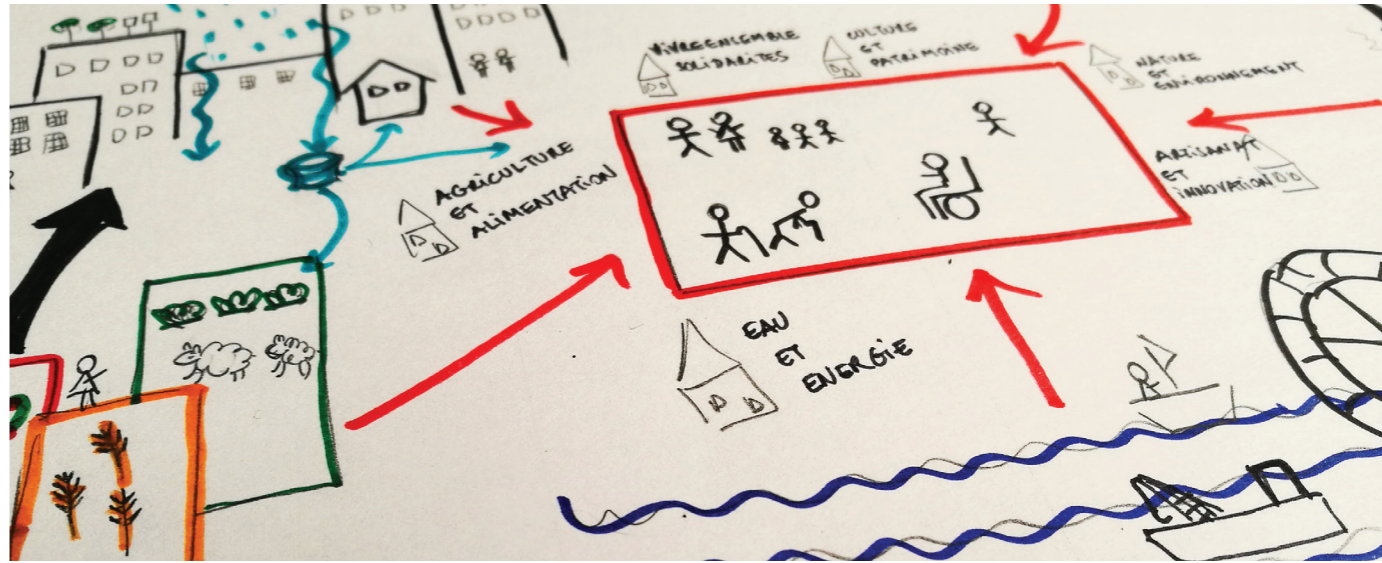 VIVRE ENSEMBLE
SOLIDARITES
CULTURE
ET
PATRIMOINE
NATURE
ET
ENVIRONNEMENT
AGRICULTURE
ET
ALIMENTATION
ARTISANAT
ET
INNOVATION
EAU
ET
ENERGIE